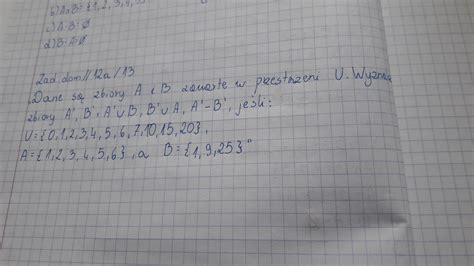 b) A∩B = {1,2,3,4,5
c) A-B = Ø
d) B-A=Ø
Zad. dom // 12a / 13
„Dane są zbiory A i B zawarte w przestrzeni U. Wyznacz
zbiory A', B', A'∪B, B'∪A, A'-B', jeśli:
U = {0,1,2,3,4,5,6,7,10,15,20},
A = {1,2,3,4,5,6}, a B = {1,9,25}"